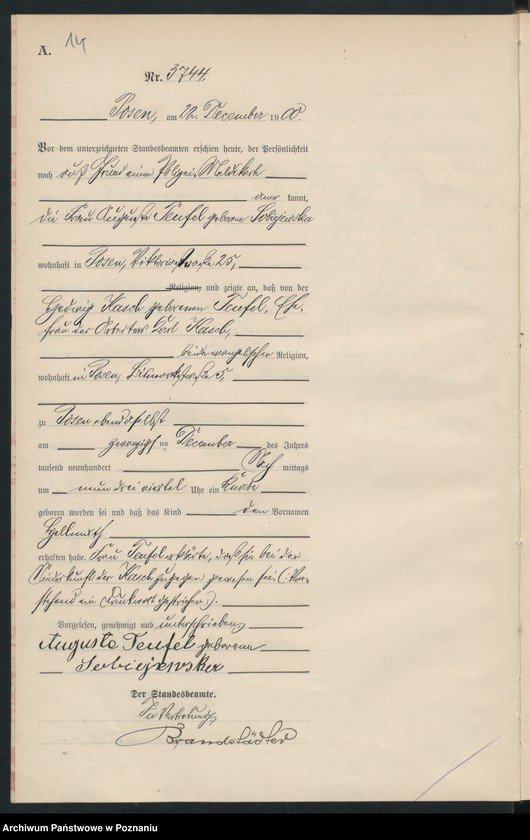 A. 14
Nr. 3744.
Posen, am 22. December 1900.
Vor dem unterzeichneten Standesbeamten erschien heute, der Persönlichkeit
nach auf Grund einer Polizei-Meldekarte
kannt,
die Frau Auguste Teufel geborene Sobiejewska
wohnhaft in Posen, Viktoriastraße 25,
Religion, und zeigte an, daß von der
Hedwig Kasch geborenen Teufel, Ehe-
frau des Karl Kasch,
beide evangelischer Religion,
wohnhaft in Posen, Bismarckstraße 5,
zu Posen ebendaselbst
am zwanzigsten December des Jahres
tausend neunhundert Nach mittags
um neun drei viertel Uhr ein Knabe
geboren worden sei und daß das Kind den Vornamen
Hellmuth
erhalten habe. Frau Teufel erklärte, daß sie bei der
Niederkunft der Kasch zugegen gewesen sei. (: Vor-
stehend ein Druckwort gestrichen :).
Vorgelesen, genehmigt und unterschrieben
Auguste Teufel geborene
Sobiejewska
Der Standesbeamte.
In Vertretung
Brandstädter
Archiwum Państwowe w Poznaniu